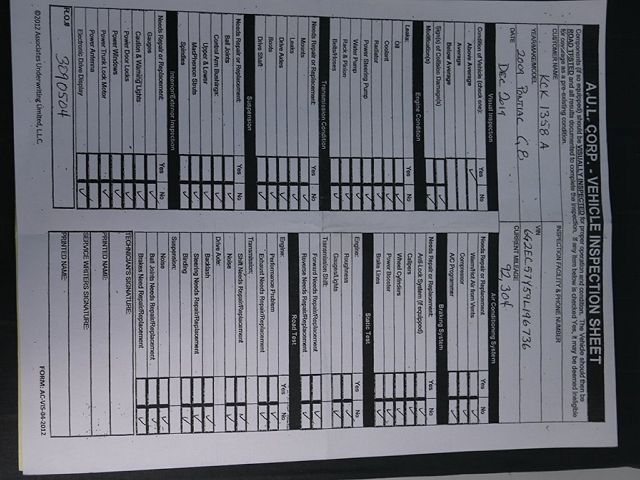 A.U.L. CORP. - VEHICLE INSPECTION SHEET
Components (if so equipped) should be VISUALLY INSPECTED for proper operation and condition. The Vehicle should then be
ROAD TESTED and all results documented to complete the inspection. If any item below is checked Yes, it may be deemed ineligible
for coverage as a pre-existing condition.
CUSTOMER NAME:
INSPECTION FACILITY & PHONE NUMBER
KCK 1358 A
YEAR/MAKE/MODEL
VIN
2009 PONTIAC G8
DATE
CURRENT MILEAGE
DEC 2014
92,304
Visual Inspection
Condition of Vehicle (check one): Yes No
Above Average
Average
Below Average
Sign(s) of Collision Damage(s)
Modification(s)
Engine Condition
Leaks: Yes No
Oil
Coolant
Radiator
Power Steering Pump
Water Pump
Rack & Pinion
Belts/Hoses
Transmission Condition
Needs Repair or Replacement: Yes No
Mounts
Leaks
Drive Axles
Boots
Drive Shaft
Suspension
Needs Repair or Replacement: Yes No
Ball Joints
Control Arm Bushings:
Upper & Lower
MacPherson Struts
Spindles
Interior/Exterior Inspection
Needs Repair or Replacement: Yes No
Gauges
Caution & Warning Lights
Power Door Locks
Power Windows
Power Trunk Lock Motor
Power Antenna
Electronic Drive Display
R.O.#
3090504
©2012 Associates Underwriting Limited, LLC.
Air Conditioning System
Needs Repair or Replacement: Yes No
Warm/Hot Air from Vents
Compressor
A/C Programmer
Braking System
Needs Repair or Replacement: Yes No
Anti-Lock System (if equipped)
Calipers
Wheel Cylinders
Power Booster
Brake Lines
Static Test
Engine: Yes No
Roughness
Gauges/Lights
Transmission Shift:
Forward Needs Repair/Replacement
Reverse Needs Repair/Replacement
Road Test
Engine: Yes No
Performance Problem
Exhaust Needs Repair/Replacement
Transmission:
Shift Needs Repair/Replacement
Noise
Drive Axle:
Backlash
Steering Needs Repair/Replacement
Binding
Suspension:
Noise
Ball Joints Needs Repair/Replacement
Brakes Need Repair/Replacement
TECHNICIAN'S SIGNATURE:
PRINTED NAME:
SERVICE WRITERS SIGNATURE:
PRINTED NAME:
FORM: AC-VIS-04-2012